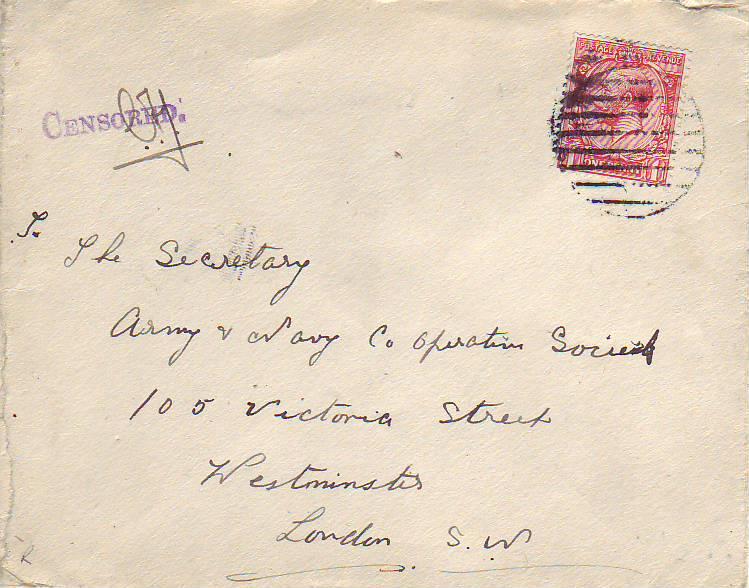 POSTAGE REVENUE
CENSORED.
To
The Secretary
Army & Navy Co operative Society
105 Victoria Street
Westminster
London S.W